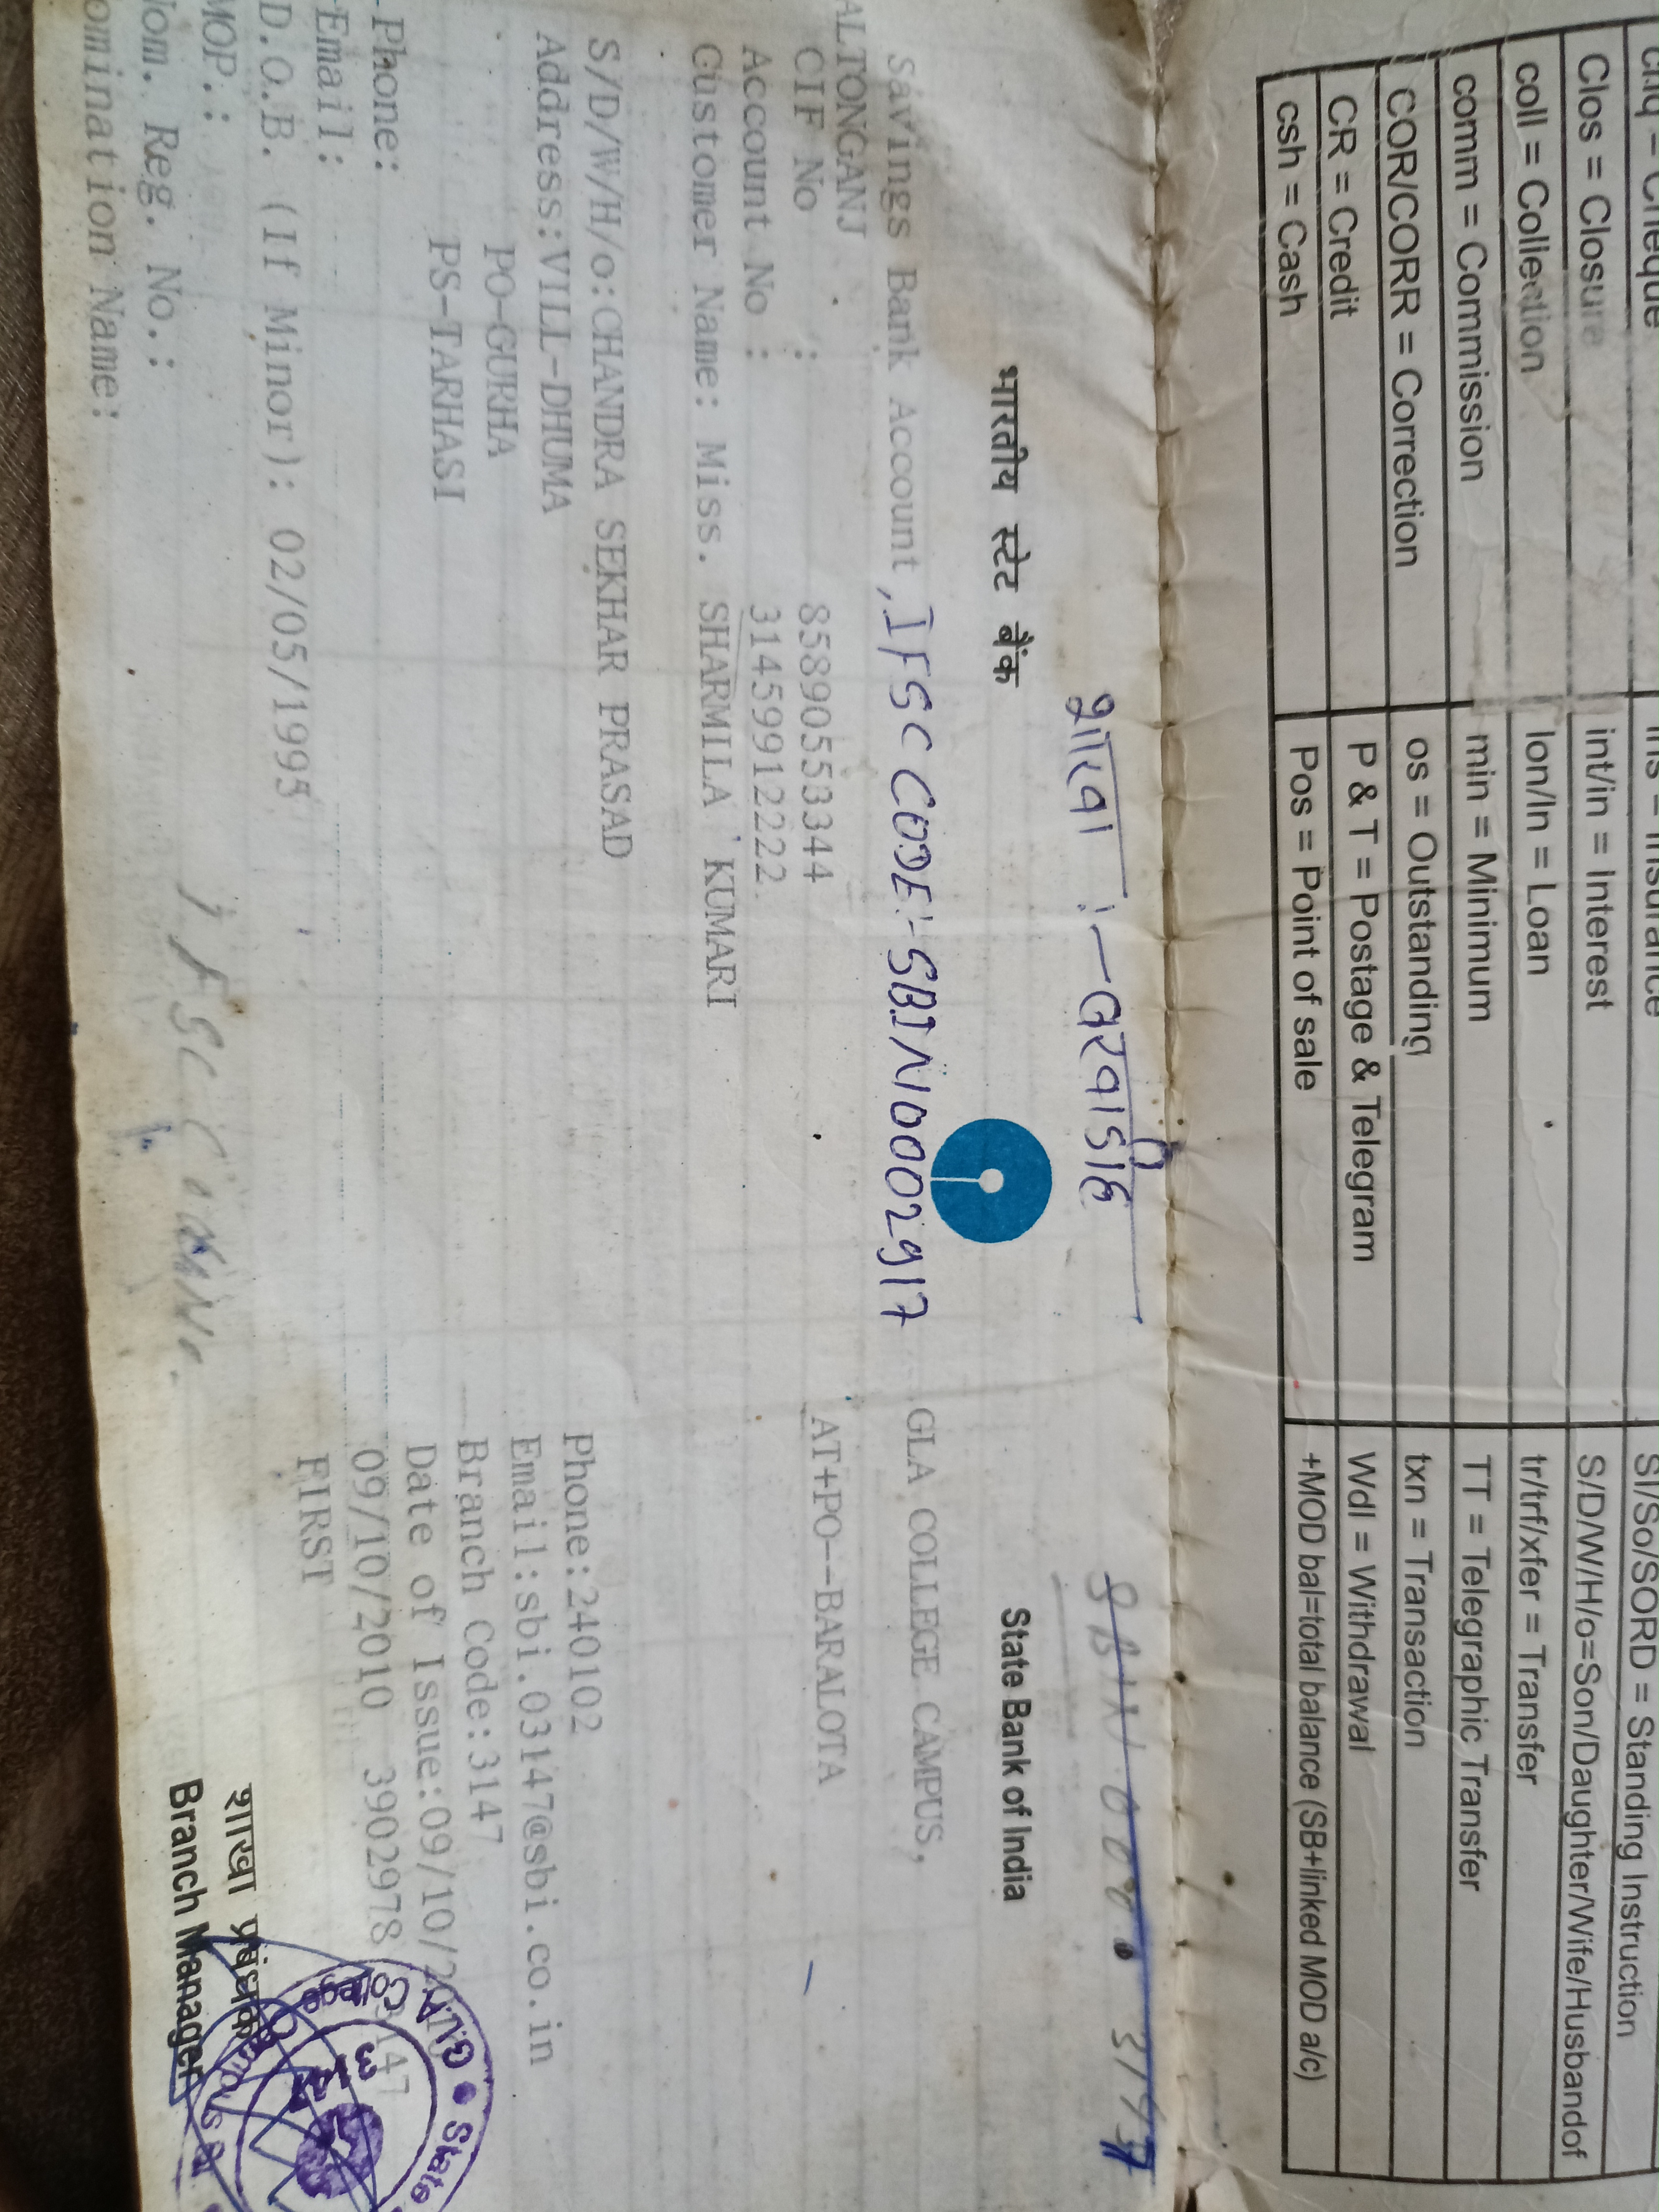 Clos = Closure int/in = Interest S/D/W/H/o=Son/Daughter/Wife/Husbandof
coll = Collection lon/ln = Loan tr/trf/xfer = Transfer
comm = Commission min = Minimum TT = Telegraphic Transfer
COR/CORR = Correction os = Outstanding txn = Transaction
CR = Credit P & T = Postage & Telegram Wdl = Withdrawal
csh = Cash Pos = Point of sale +MOD bal=total balance (SB+linked MOD a/c)
शाखा :- बरवाडीह
भारतीय स्टेट बैंक State Bank of India
Savings Bank Account , IFSC CODE:- SBIN0002917 GLA COLLEGE CAMPUS,
ALTONGANJ AT+PO--BARALOTA
CIF No : 85890553344
Account No : 31459912222
Customer Name: Miss. SHARMILA KUMARI
S/D/W/H/o: CHANDRA SEKHAR PRASAD Phone:240102
Address:VILL-DHUMA Email:sbi.03147@sbi.co.in
PO-GURHA Branch Code:3147
PS-TARHASI Date of Issue:09/10/
Phone: 09/10/2010 3902978
Email: FIRST
D.O.B. (If Minor): 02/05/1995
MOP.: शाखा प्रबंधक
Nom. Reg. No.: Branch Manager
omination Name:
GLA College Campus
State